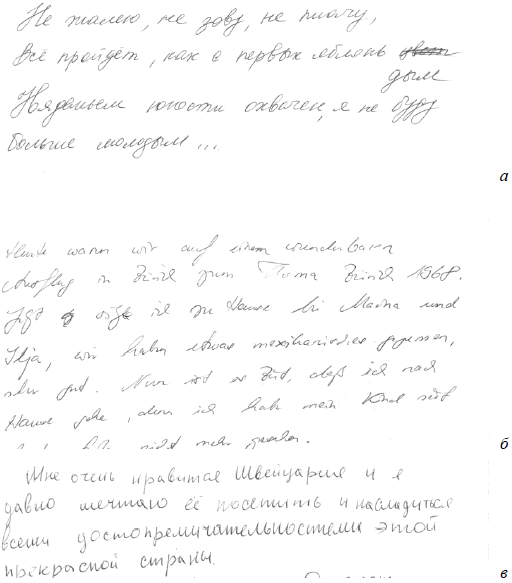 Не жалею, не зову, не плачу,
Всё пройдёт, как с первых яблонь
дым
юности охвачен, я не буду
больше молодым...
а
Heute waren wir auf einem wunderbaren
Ausflug in Zürich zum Thema Zürich 1968.
Jetzt sitze ich zu Hause bei Marina und
Ilja, wir haben etwas mexikanisches gegessen,
sehr gut. Nun ist es Zeit, daß ich nach
Hause gehe, denn ich habe mein Kind seit
nicht mehr gesehen.
б
Мне очень нравится Швейцария и я
давно мечтаю её посетить и насладиться
всеми достопремичательностями этой
прекрасной страны.
в